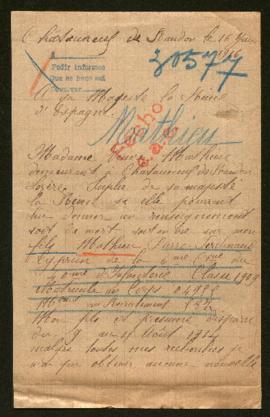 Chateauneuf de Randon le 16 Juin
1916
30577
Pedir informes
Que se haga asi
A sa Majesté la Reine
d'Espagne
Mathieu
Madame Mathieu
demeurant à Chateauneuf de Randon
Lozère Suplie de sa majesté
la Reine si elle pourrait
lui donner un renseignement
soit de mort soit en vie sur mon
fils Mathieu Pierre Ferdinand
Cyprien de la 4me Cie du
me d'Infanterie Classe 1909
Matricule au Corps
au Recrutement
Mon fils est présumé disparu
du 9 au 11 Août 1914
malgré toute mes recherches je
n'ai pue obtenir aucune nouvelle